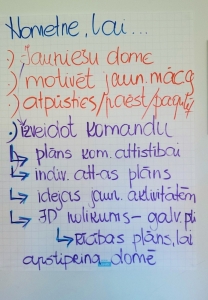 Nometne, lai...
:) Jauniešu dome
:) motivēt jaun. mācq
:) atpūsties/paēst/pagulēt
:) izveidot komandu
↳ plāns kom. attīstībai
↳ indiv. att-as plāns
↳ idejas jaun. aktivitātēm
↳ JD nolikums - galv. pti
↳ Rīcības plāns, lai
apstiprina domē